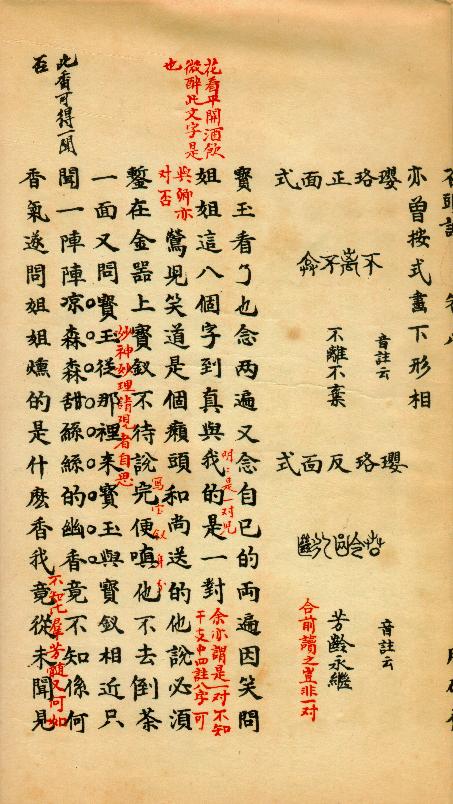 亦曾按式畫下形相
瓔珞正面式
不離不棄
音註云
不離不棄
瓔珞反面式
芳齡永繼
音註云
芳齡永繼
合前讀之豈非一对
寶玉看了也念兩遍又念自已的兩遍因笑問
明〻是一对児
姐姐這八個字到真與我的是一對
余亦謂是一对不知
干支中四註八字可
與卿亦
对否
花看半開酒飲
微醉此文字是
也
鶯児笑道是個癩頭和尚送的他說必須
鏨在金器上寶釵不待說完便嗔他不去倒茶
寫宝釵身分
一面又問寶玉從那裡來寶玉與寶釵相近只
妙神妙理請观者自思
聞一陣陣凉森森甜絲絲的幽香竟不知係何
不知比群芳髓又何如
香氣遂問姐姐燻的是什麽香我竟從未聞見
此香可得一聞
否